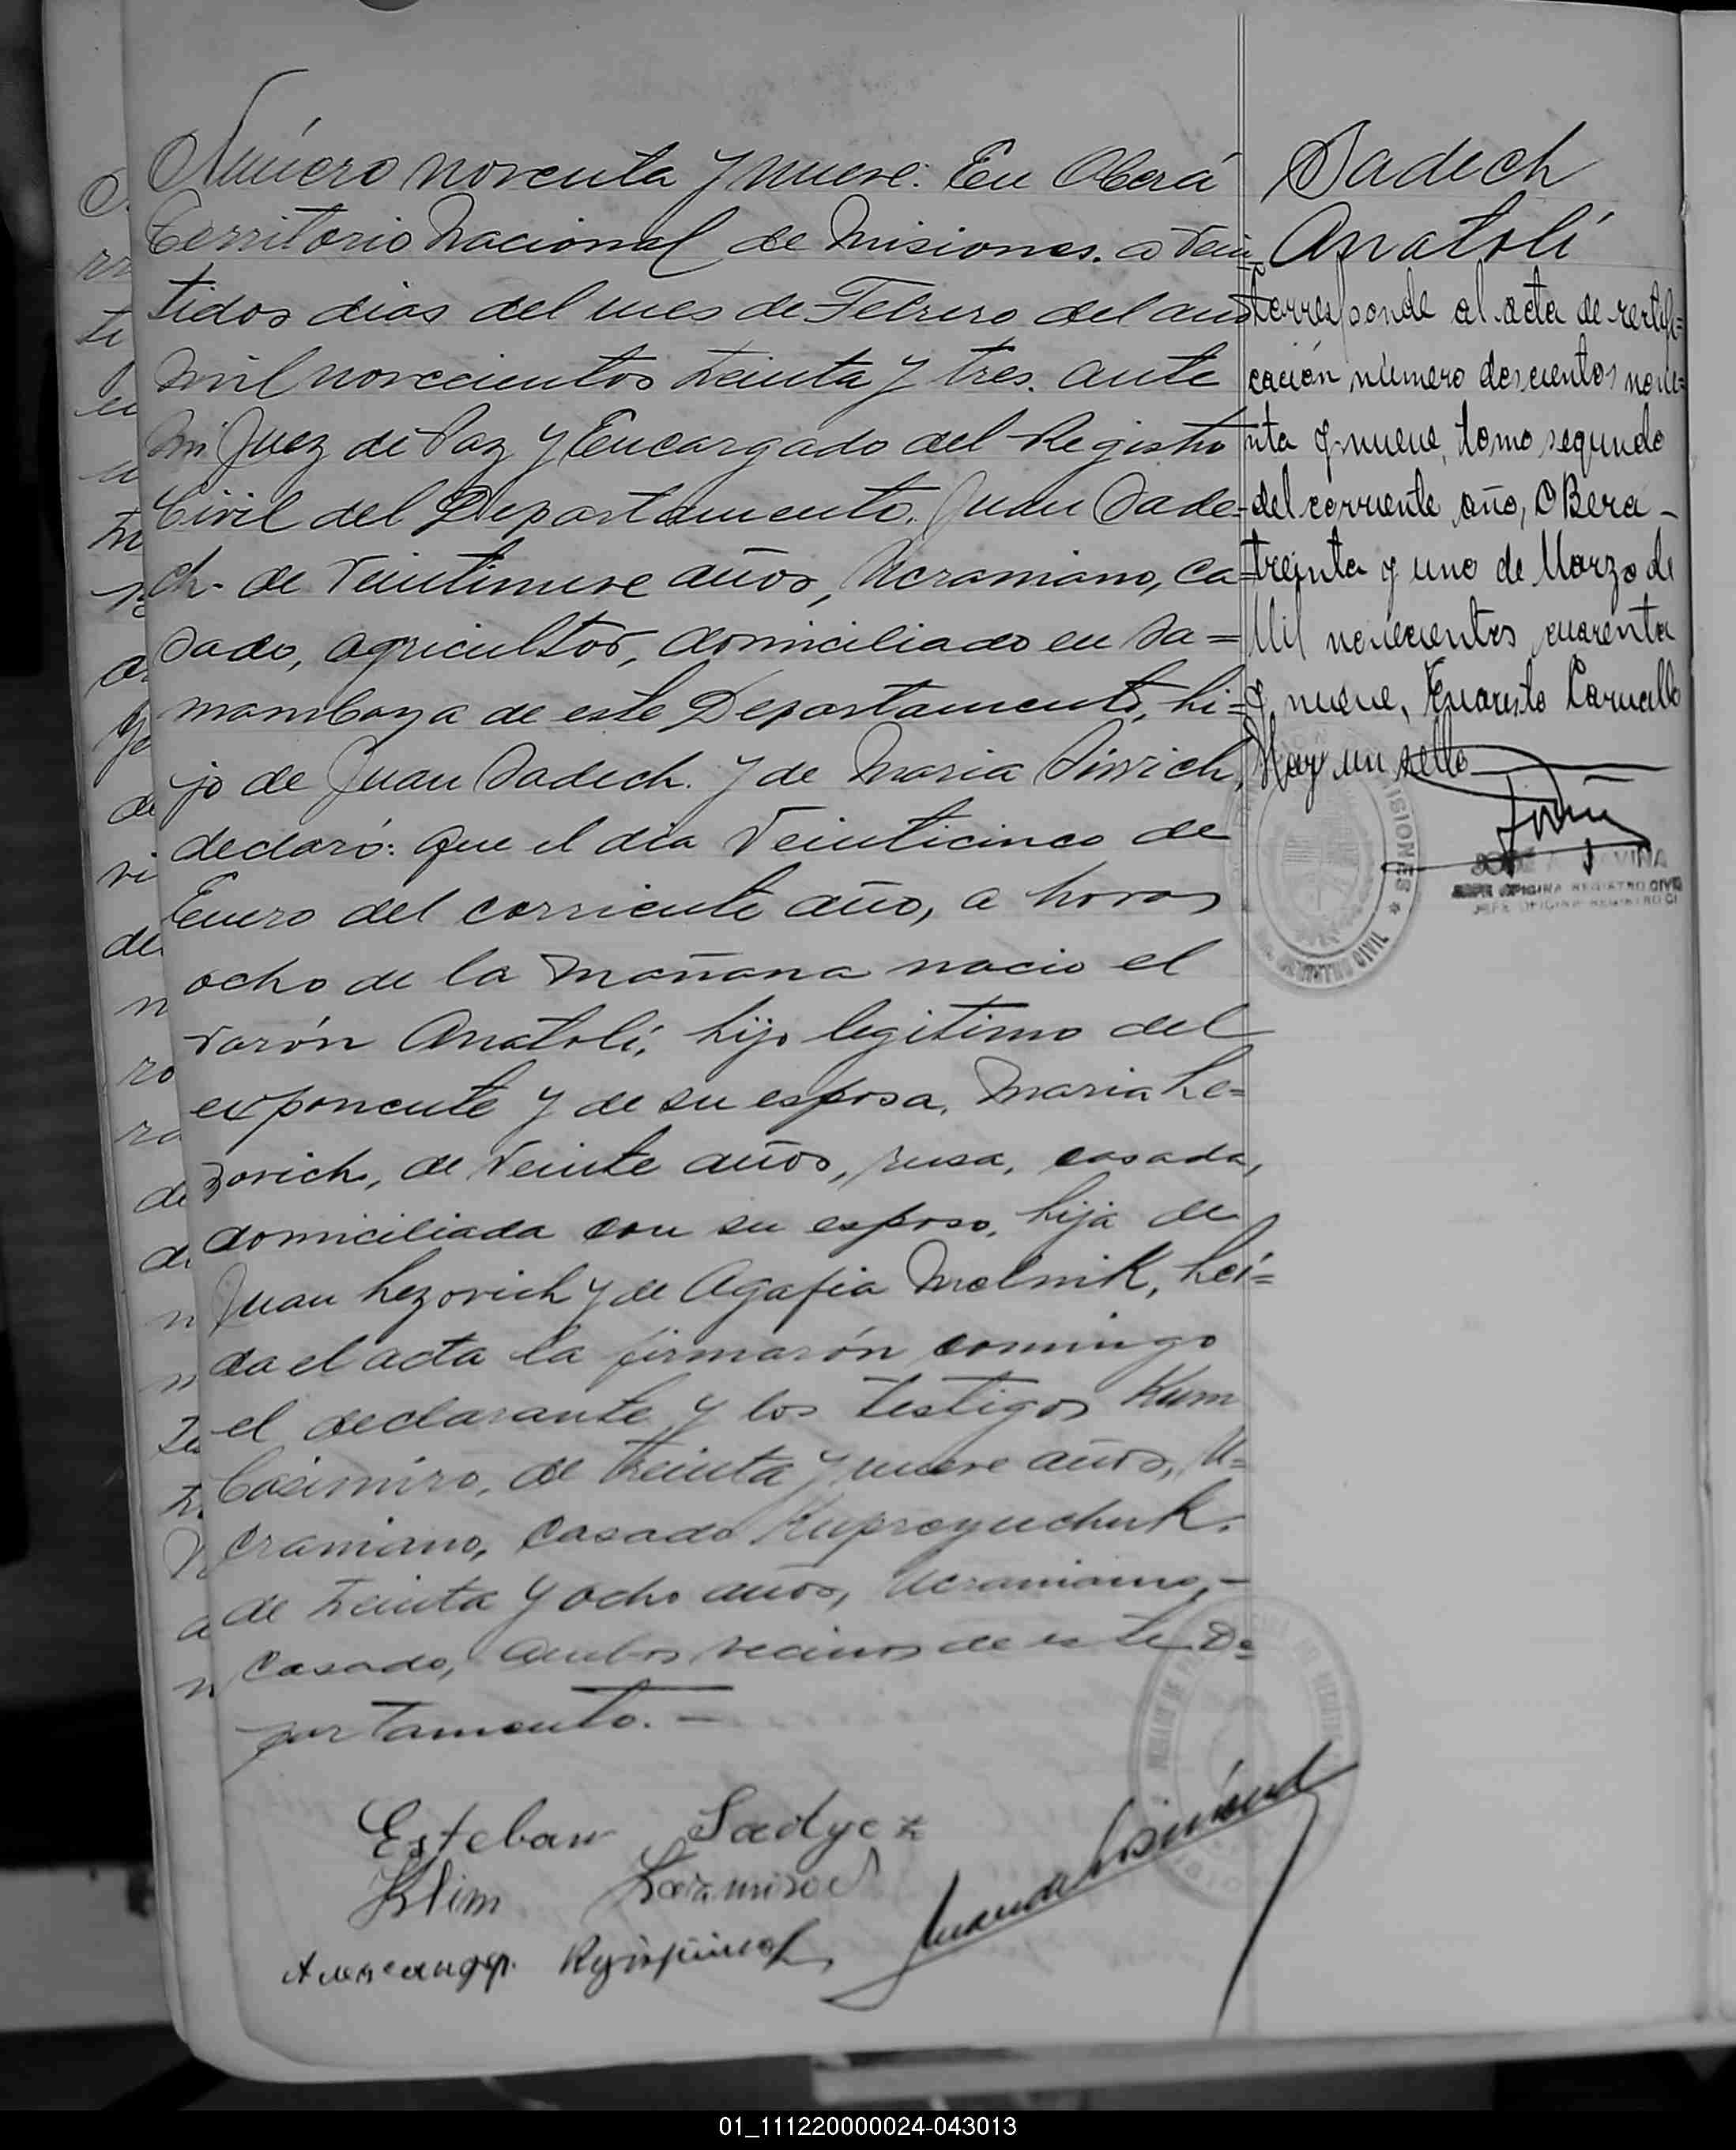 Número noventa y nueve. En Oberá
Territorio Nacional de Misiones. a vein
tidos dias del mes de Febrero del año
mil novecientos treinta y tres. ante
mi Juez de Paz y Encargado del Registro
Civil del Departamento. Juan Sade-
ch- de veintinueve años, Ucraniano, ca=
sado, agricultor, domiciliado en Sa=
mambaya de este Departamento, hi=
jo de Juan Sadech. y de Maria
declaró: que el dia veinticinco de
Enero del corriente año, a horas
ocho de la mañana nacio el
varón Anatolí, hijo legitimo del
exponente y de su esposa, Maria Le=
zovich, de veinte años, rusa, casada,
domiciliada con su esposo, hija de
Juan Lezovich y de Agafia Melnik, Leí=
da el acta la firmarón conmingo
el declarante y los testigos
Casimiro, de treinta y nueve años, U=
craniano, casado
de treinta y ocho años, Ucraniano,-
Casado, ambos vecinos de este De
partamento. -
Esteban Sadyez
Klim
Sadech
Anatolí
Corresponde al acta de rectifi=
cación número doscientos nove=
nta y nueve, tomo segundo
del corriente año, OBera -
treinta y uno de Marzo de
Mil novecientos cuarenta
y nueve, Evaristo
Hay un sello
MISIONES
CIVIL
JEFE OFICINA REGISTRO CIVIL
01_111220000024-043013